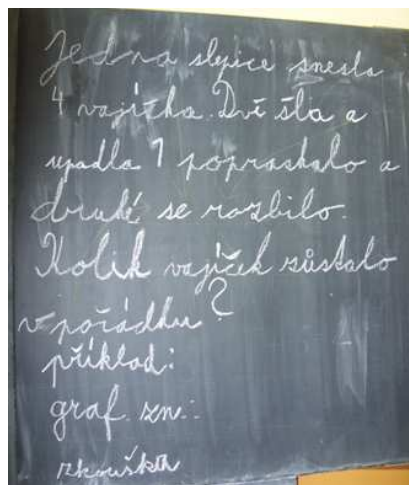 Jedna slepice snesla
4 vajíčka. Dvě šla a
upadla 1 popraskalo a
druhé se rozbilo.
Kolik vajíček zůstalo
v pořádku?
příklad:
graf. zn.:
zkouška